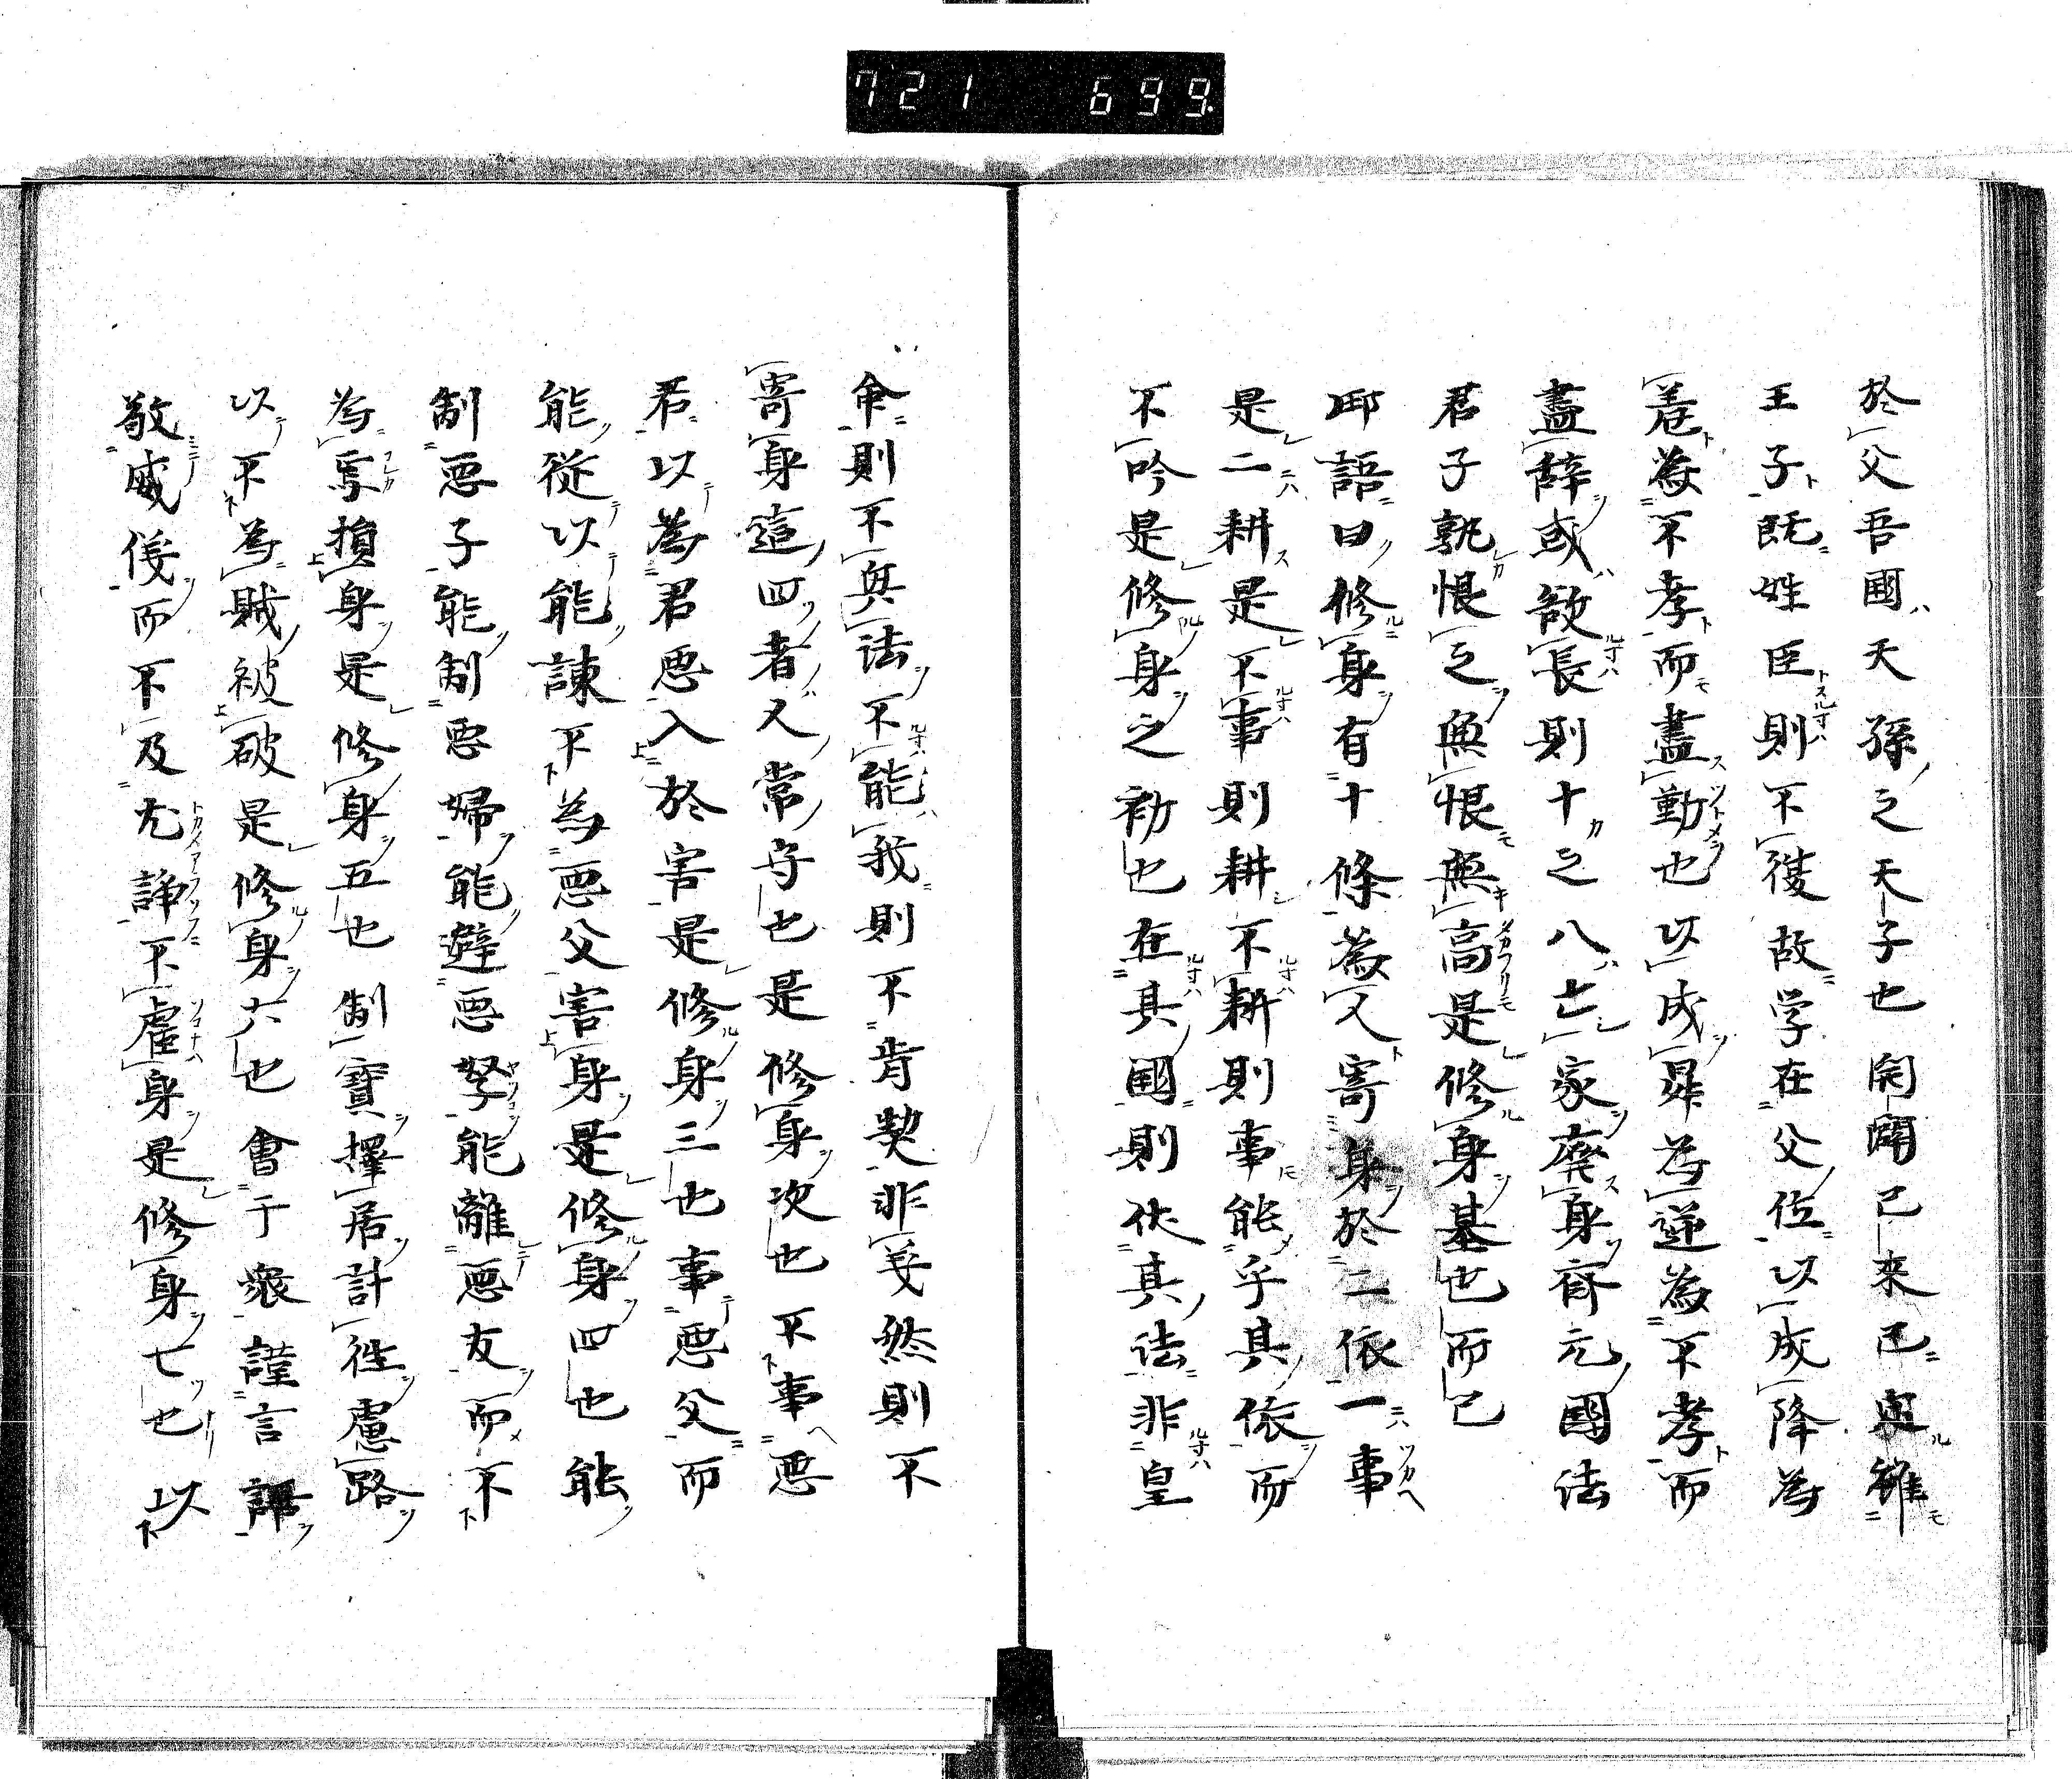 721 699.
於父吾國天孫之天子也開闢已來已與雖
王子既姓臣則不復故学在父位以成降為
羌為不孝而盡勤也以成昇為逆為不孝而
盡辞或欲長則十之八亡家廃身斉元國法
君子孰恨之無恨無高是修身基也而已
邸語曰修身有十條為人寄身於二依一事
是二耕是不事則耕不耕則事能乎其依而
不吟是修身之初也在其國則伏其法非皇
命則不與法不能我則不肯契非義然則不
寄身這四者人常守也是修身次也不事悪
君以為君悪入於害是修身三也事悪父而
能従以能諫不為悪父害身是修身四也能
制悪子能制悪婦能避悪孥能離悪友而不
為焉損身是修身五也制寶擇居計往慮路
以不為賊被破是修身六也會于衆謹言
敬威儀而不及尤諍不虐身是修身七也以